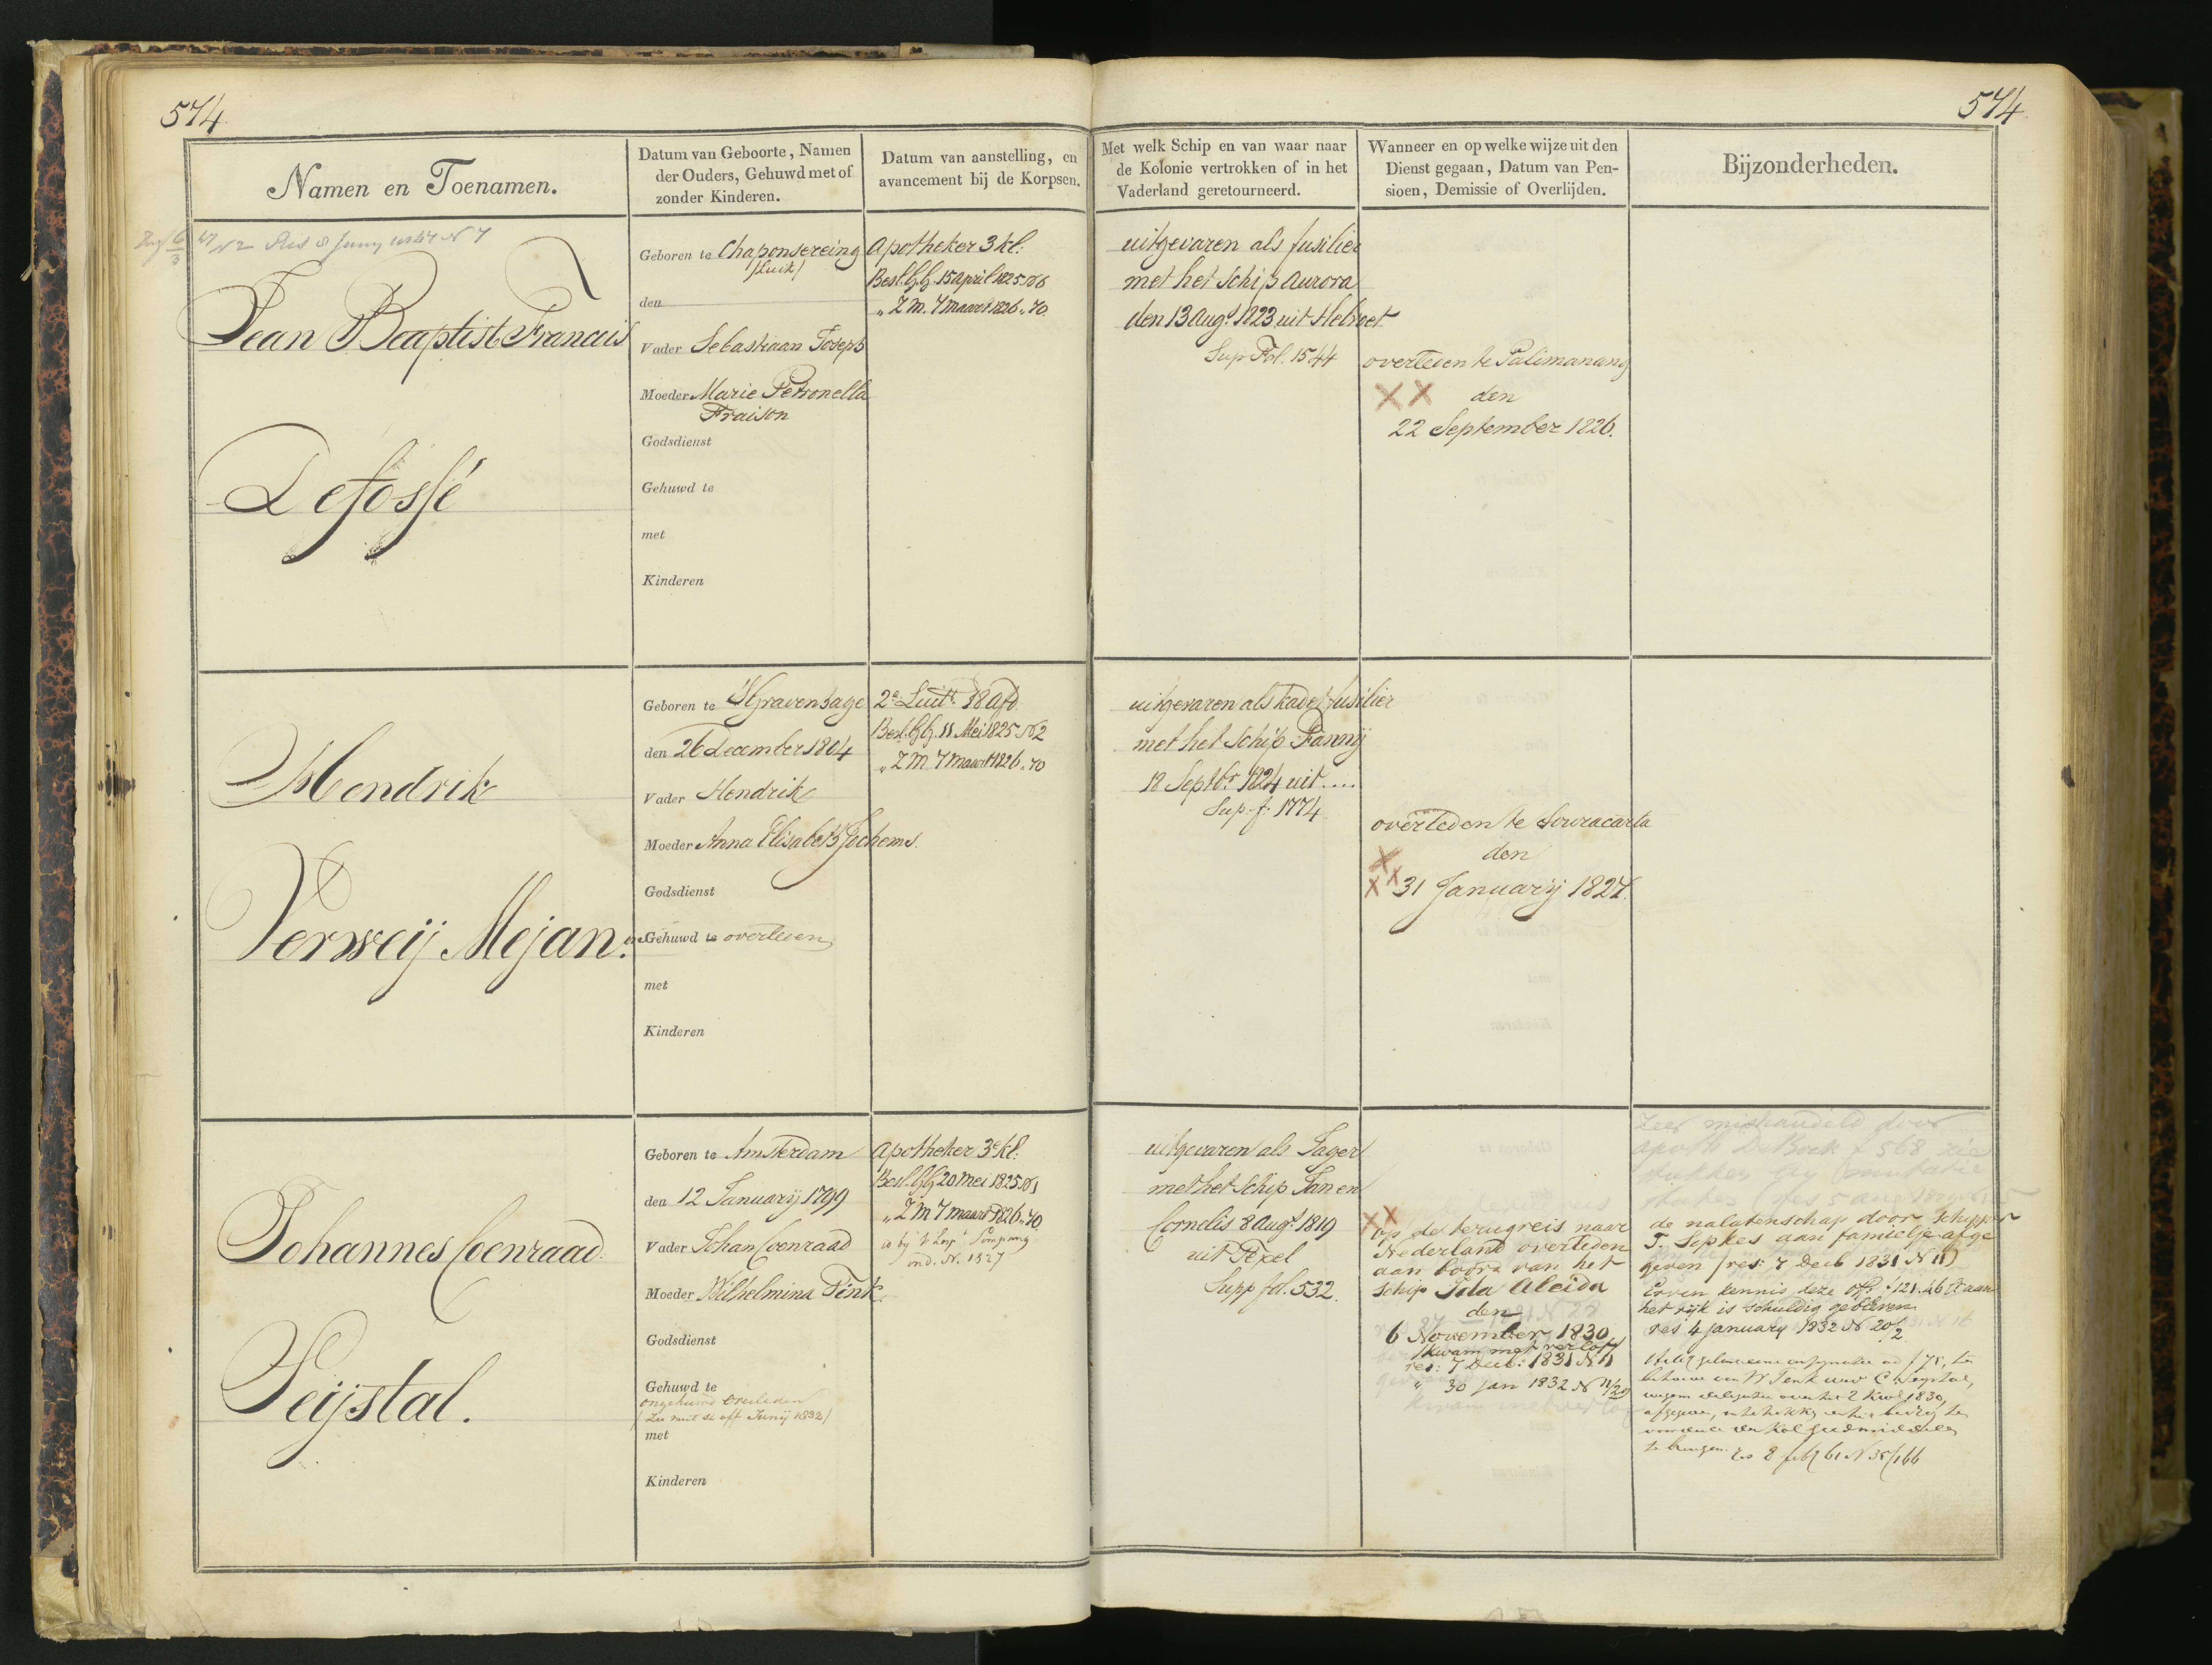 574.
574.
Namen en Toenamen.
Datum van Geboorte, Namen
der Ouders, Gehuwd met of
zonder Kinderen.
Datum van aanstelling, en
avancement bij de Korpsen.
Met welk Schip en van waar naar
de Kolonie vertrokken of in het
Vaderland geretourneerd.
Wanneer en op welke wijze uit den
Dienst gegaan, Datum van Pen-
sioen, Demissie of Overlijden.
Bijzonderheden.
Jean Baptist Francis
Defossé
Geboren te Chaponsereing
/Luik/
den
Vader Sebastiaan Joseph
Moeder Marie Petronella
Fraison
Godsdienst
Gehuwd te
met
Kinderen
Apotheker 3 kl:
Besl. GG. 15 April 1825 No 6
„ Z M. 7 Maart 1826 „ 70.
uitgevaren als fusilier
met het Schip Aurora
den 13 Augt. 1823 uit Helvoet
Sup Fol. 1544
overleden te Palimanang
XX den
22 September 1826.
Hendrik
Verweij Mejan.
Geboren te 'SGravenhage
den 26 december 1804
Vader Hendrik
Moeder Anna Elisabeth Jochems.
Godsdienst
Gehuwd te overleden
met
Kinderen
2e Luitt. 18 Afd
Besl. GG. 11 Mei 1825 No 2
„ Z M. 7 Maart 1826 „ 70
uitgevaren als kadet fusilier
met het Schip Fannij
18 Septbr. 1824 uit ....
Sup. f. 1774.
overleden te Souracarta
X den
XX 31 Januarij 1827.
Johannes Coenraad
Seijstal.
Geboren te Amsterdam
den 12 Januarij 1799
Vader Johan Coenraad
Moeder Wilhelmina Tenk.
Godsdienst
Gehuwd te
ongehuwd overleden
/Zie mut st off Junij 1832/
met
Kinderen
Apotheker 3e kl:
Besl. GG 20 Mei 1825 No 1
„ Z M 7 Maart 1826 „ 70
uitgevaren als Jager
met het Schip Jan en
Cornelis 8 Augt. 1819
uit Texel
Supp fol. 532.
XX
op de terugreis naar
Nederland overleden
aan boord van het
Schip Ida Aleida
den
6 November 1830
/kwam met verlof/
res: 7 Decb: 1831 N 11
„ 30 Jan 1832 N 11/20
Zeer mishandeld door
apoth De Boek f 568 zie
de nalatenschap door Schipper
T. Sepkes aan famielje afge
geven (res: 7 Decb 1831 N 11)
Erven kennis deze off: f 121.46 aan
het rijk is schuldig gebleven
res 4 january 1832 N 20/2